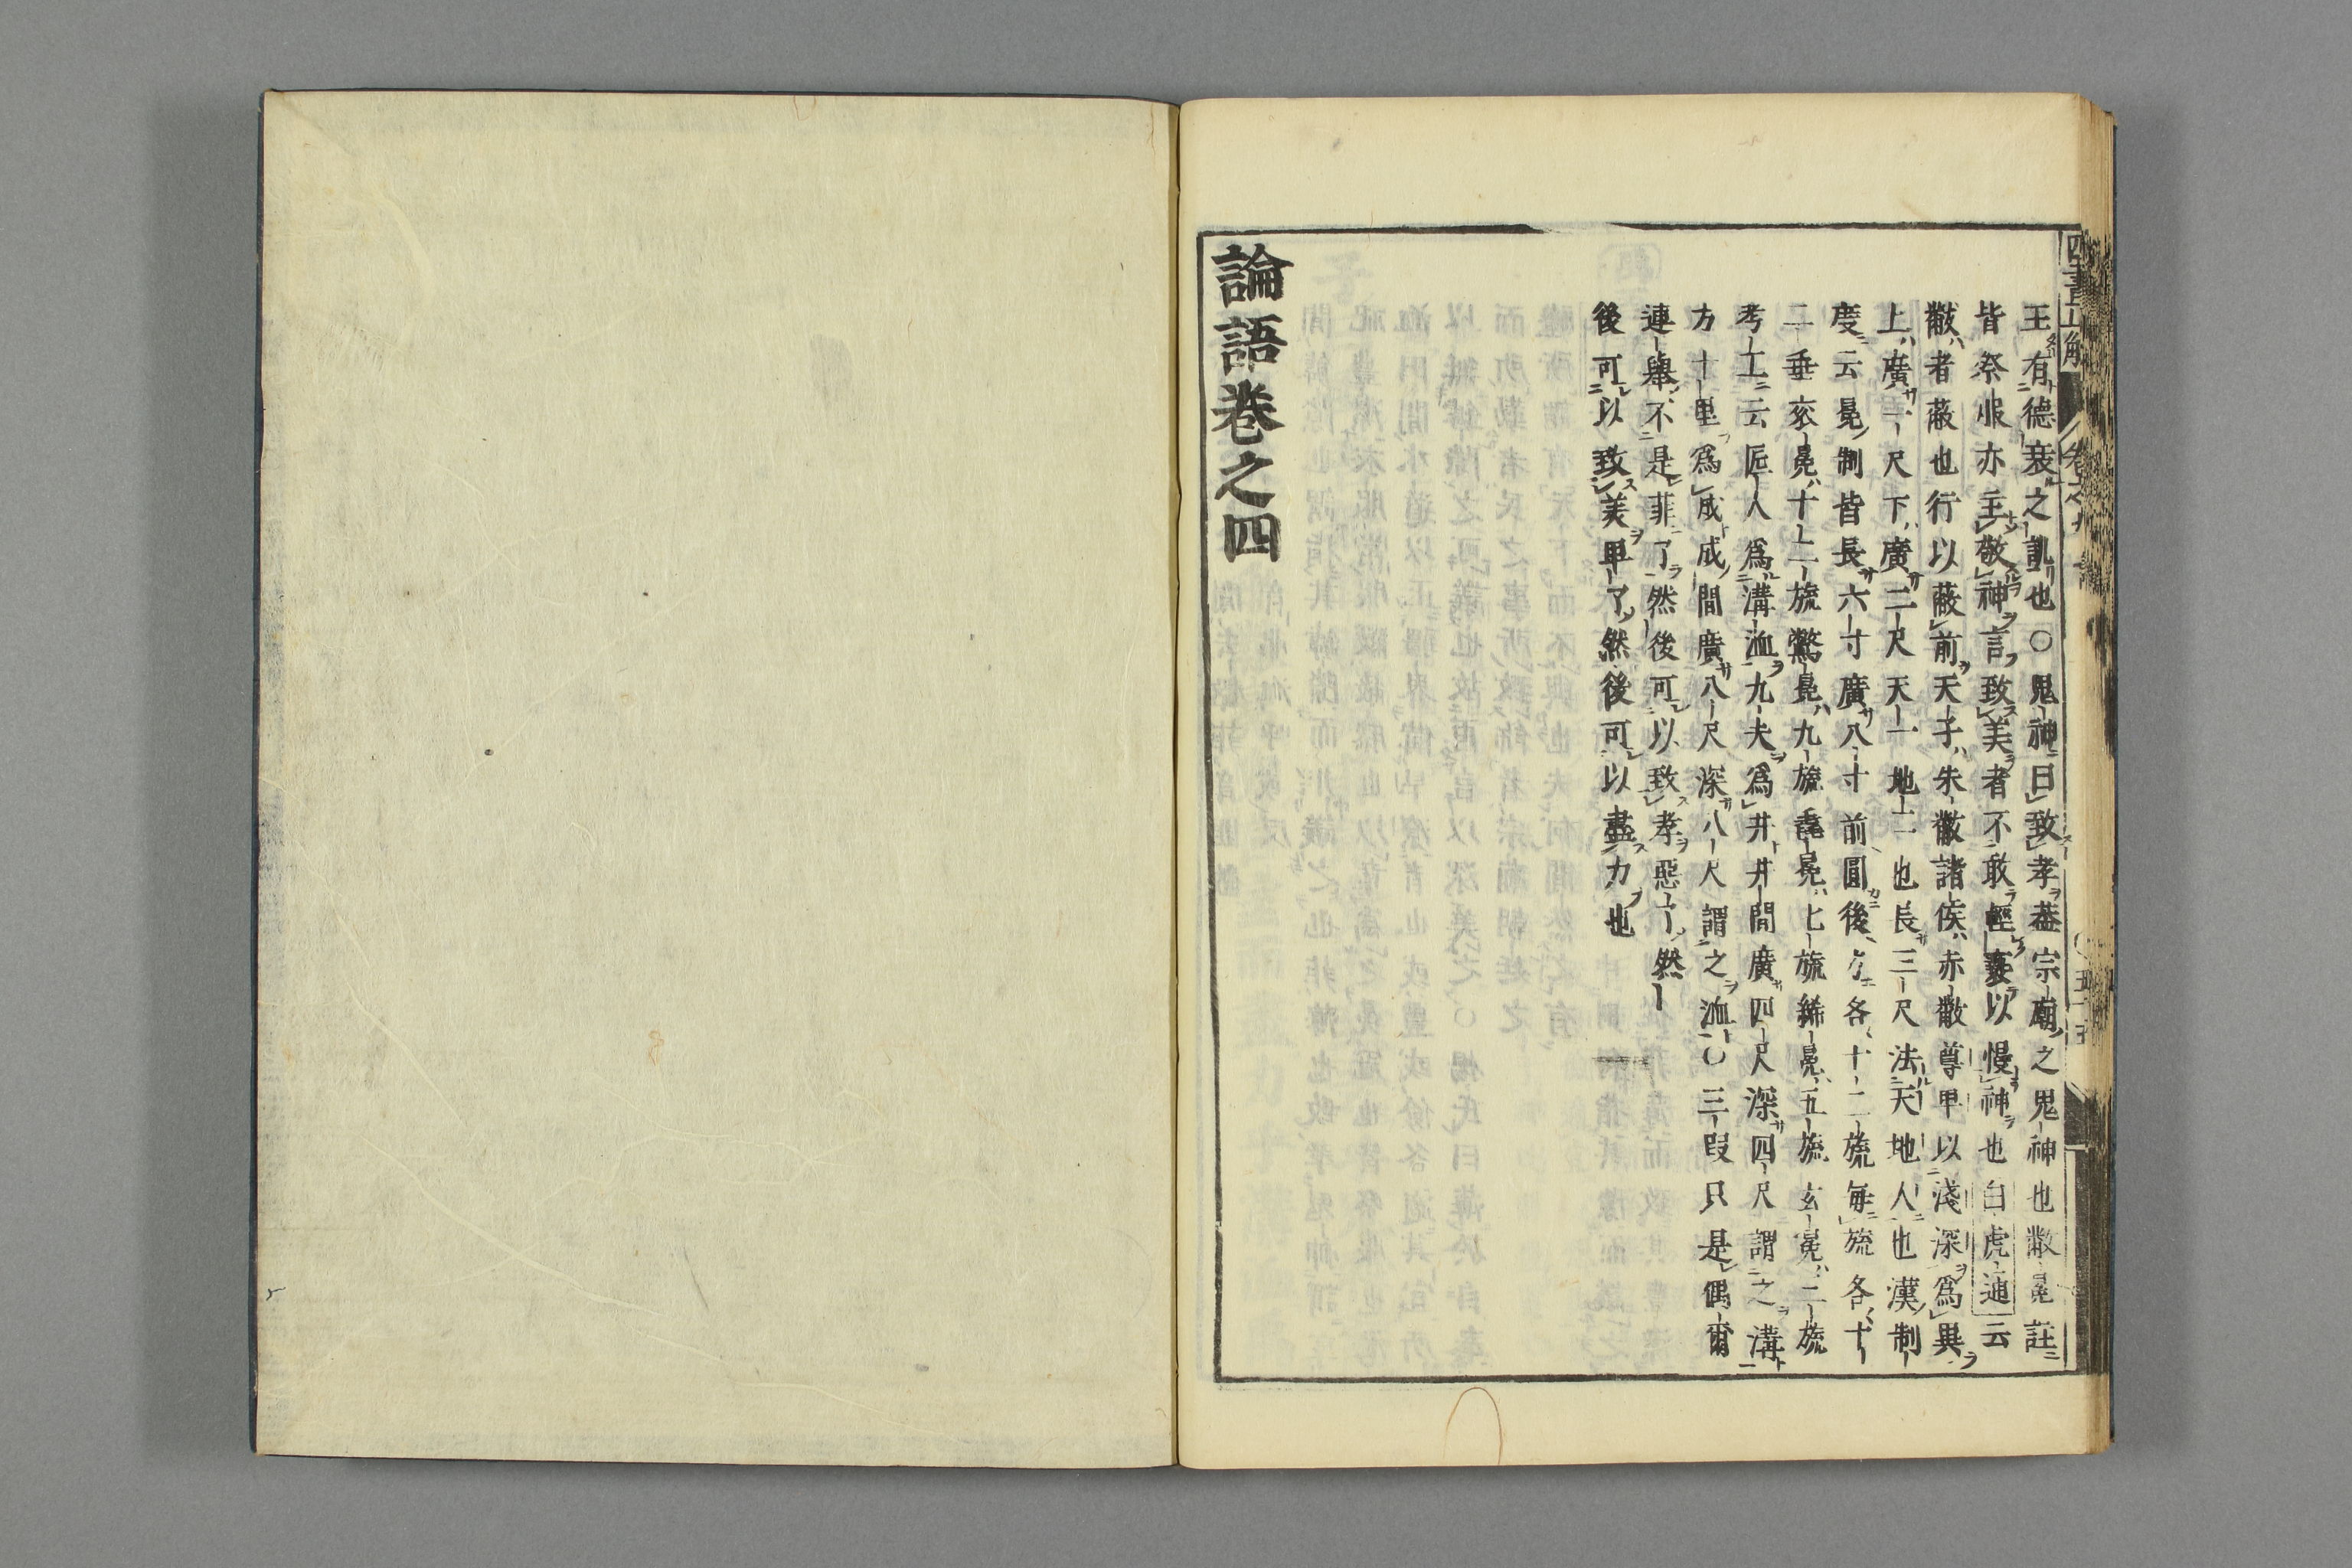 王有德衰之譏也○鬼神曰致孝蓋宗廟之鬼神也黻冕註
皆祭服亦主敬神言致美者不敢輕褻以慢神也白虎通云
黻者蔽也行以蔽前天子朱黻諸侯赤黻尊卑以淺深爲異
上廣一尺下廣二尺天一地二也長三尺法天地人也漢制
度云冕制皆長六寸廣八寸前圓後方各十二旒每旒各十
二垂衮冕十二旒鷩冕九旒毳冕七旒絺冕五旒玄冕二旒
考工云匠人爲溝洫九夫爲井井間廣四尺深四尺謂之溝
方十里爲成成間廣八尺深八尺謂之洫○三段只是偶爾
連舉不是菲了然後可以致孝惡ーー然ー
後可以致美卑了然後可以盡力也
論語卷之四